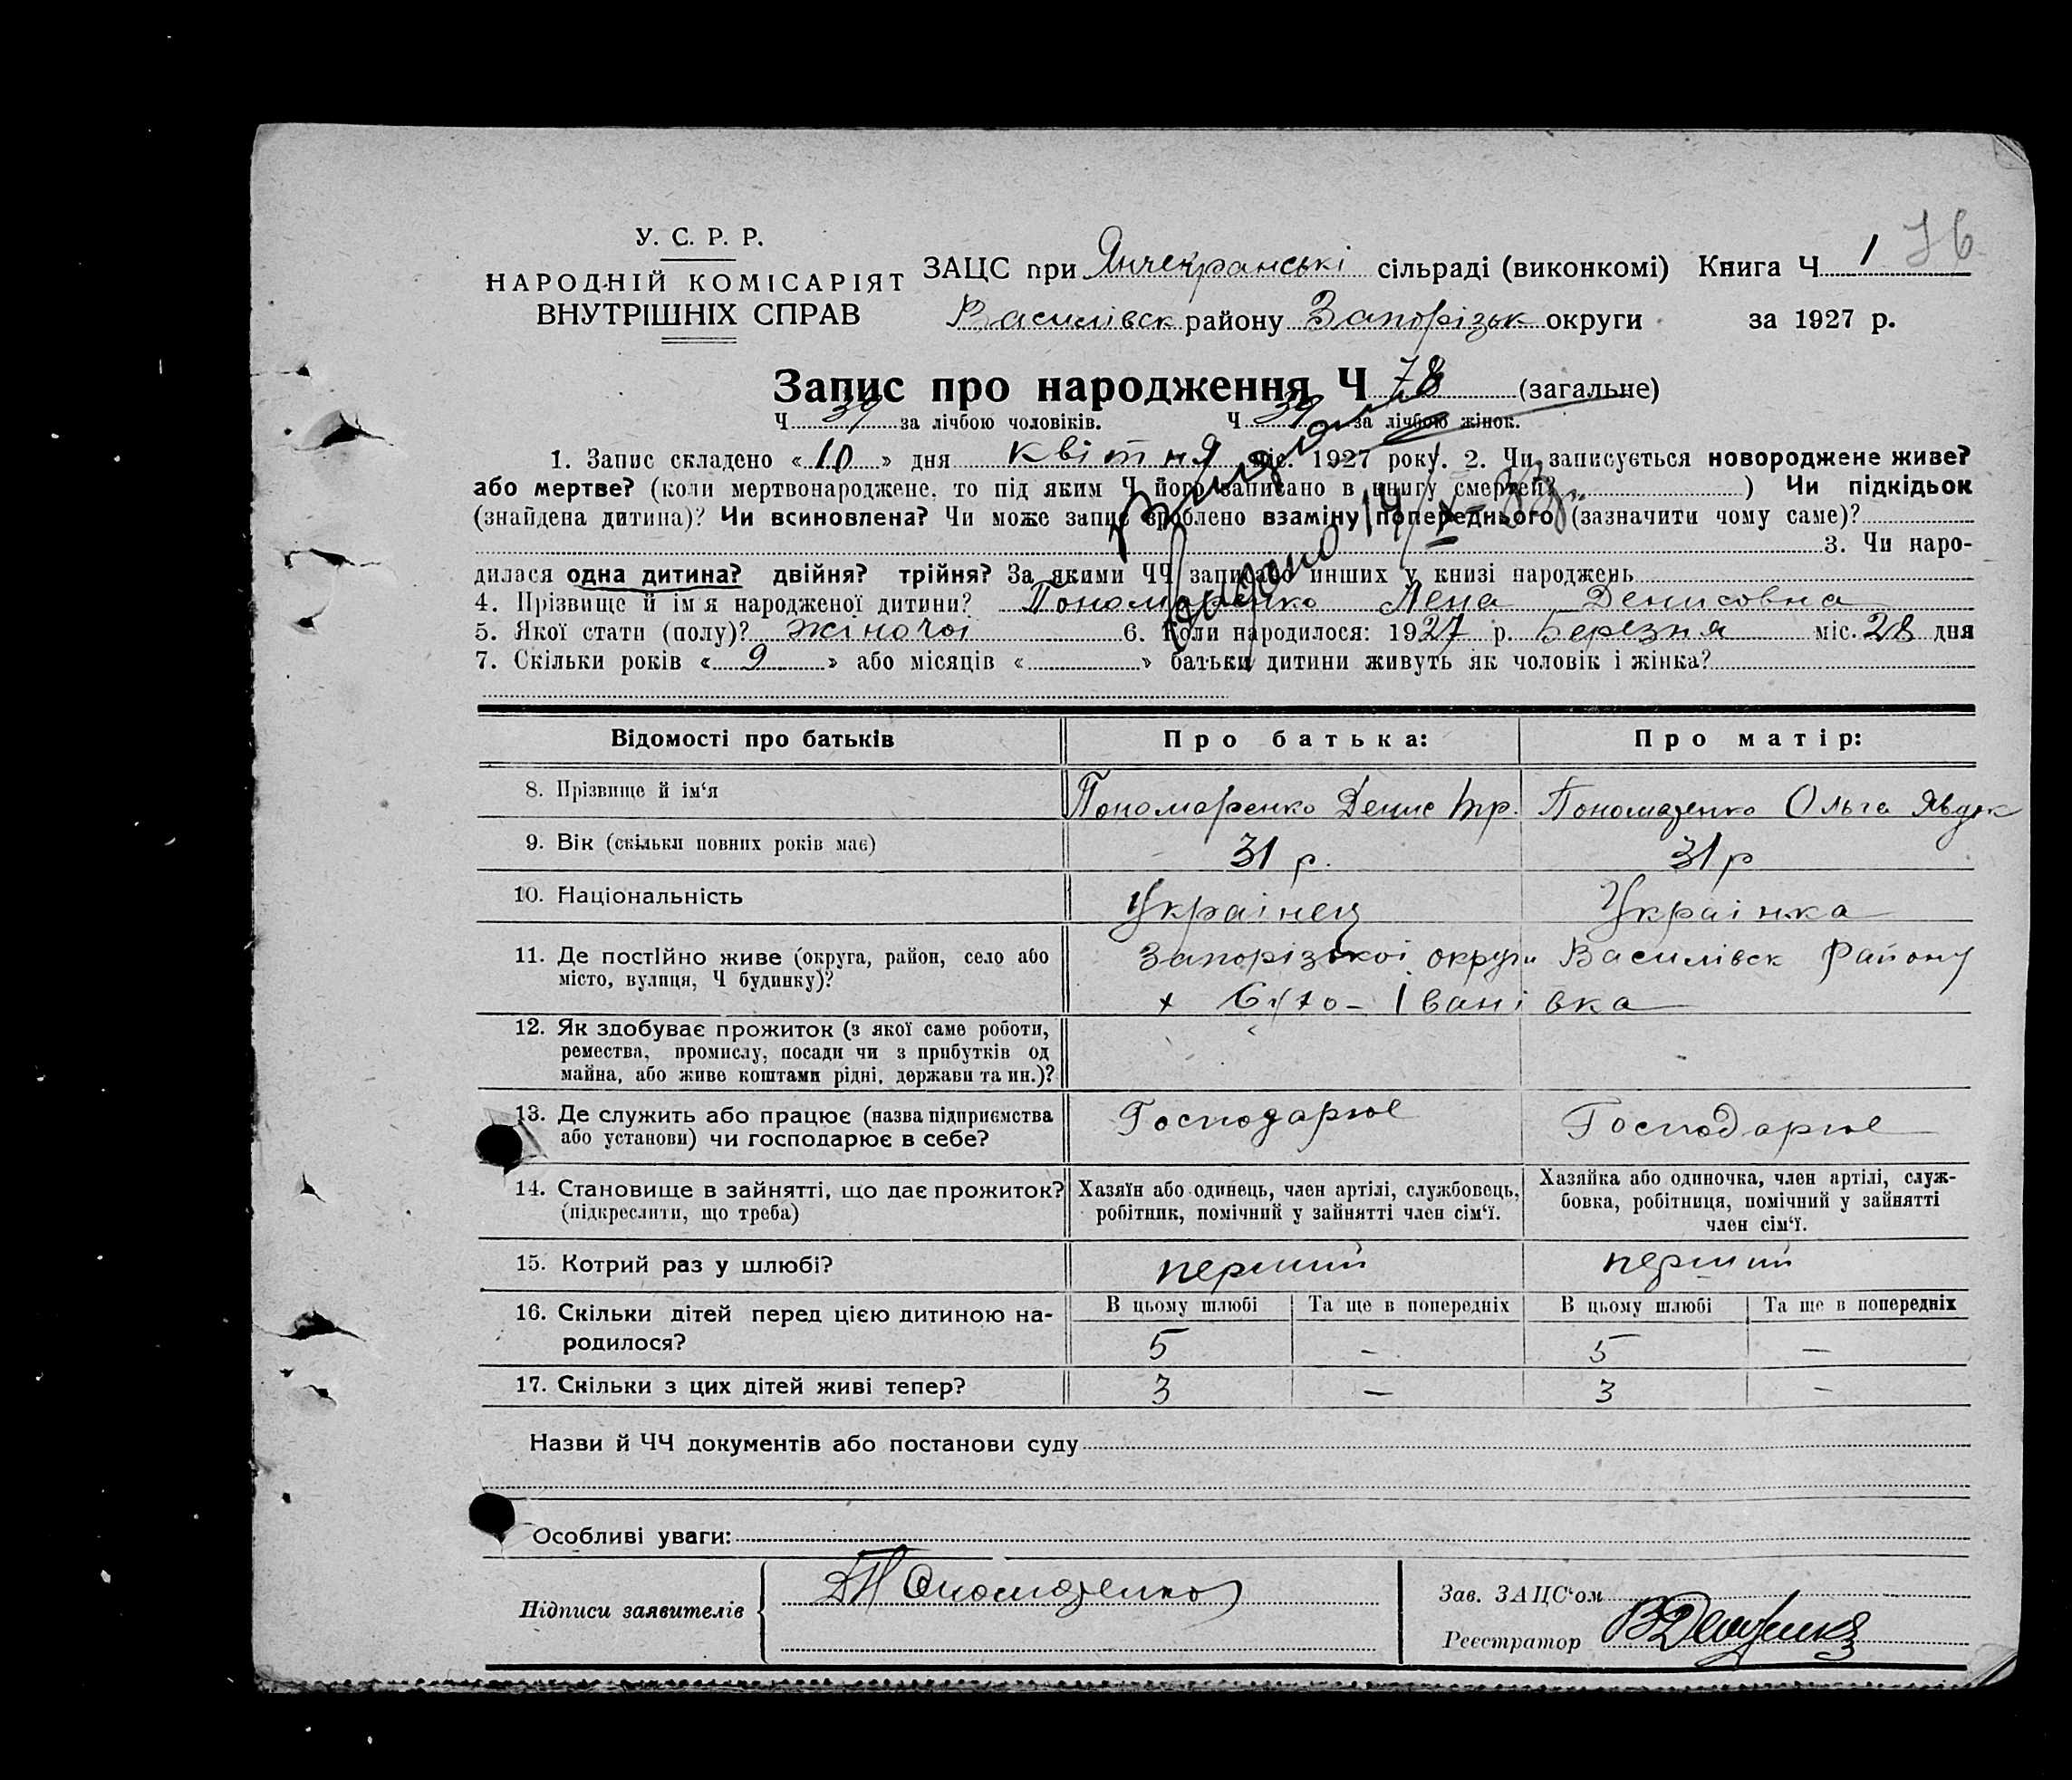 76
У. С. Р. Р.
НАРОДНІЙ КОМІСАРІЯТ
ВНУТРІШНІХ СПРАВ
ЗАЦС при Янчекранські сільраді (виконкомі) Книга Ч 1
Василівск району Запорізьк округи за 1927 р.
Запис про народження Ч 78 (загальне)
Ч 39 за лічбою чоловіків. Ч 39 за лічбою жінок.
1. Запис складено « 10 » дня квітня міс. 1927 року. 2. Чи записується новороджене живе?
або мертве? (коли мертвонароджене, то під яким Ч його записано в книгу смертей? ) Чи підкідьок
(знайдена дитина)? Чи всиновлена? Чи може запис зроблено взаміну попереднього (зазначити чому саме)?
3. Чи наро-
дилася одна дитина? двійня? трійня? За якими ЧЧ записано инших у книзі народжень
4. Прізвище й імя народженої дитини? Пономаренко Лена Денисовна
5. Якої стати (полу)? жіночоі 6. Коли народилося: 1927 р. Березня міс. 28 дня
7. Скільки років « 9 » або місяців « » батьки дитини живуть як чоловік і жінка?
Видано 14/X
Відомості про батьків Про батька: Про матір:
8. Прізвище й ім‘я Пономаренко Денис Тр. Пономаренко Ольга Явдок
9. Вік (скільки повних років має) 31 р. 31 р
10. Національність Украінец Украінка
11. Де постійно живе (округа, район, село або Запорізькоі округи Василівск Району
місто, вулиця, Ч будинку)? Івановка
12. Як здобуває прожиток (з якої саме роботи,
ремества, промислу, посади чи з прибутків од
майна, або живе коштами рідні, держави та ин.)?
13. Де служить або працює (назва підприємства Господарює Господарює
або установи) чи господарює в себе?
14. Становище в зайнятті, що дає прожиток? Хазяїн або одинець, член артілі, службовець, Хазяйка або одиночка, член артілі, служ-
(підкреслити, що треба) робітник, помічний у зайнятті член сім‘ї. бовка, робітниця, помічний у зайнятті
член сім‘ї.
15. Котрий раз у шлюбі? перший перший
16. Скільки дітей перед цією дитиною на- В цьому шлюбі Та ще в попередніх В цьому шлюбі Та ще в попередніх
родилося? 5 – 5 –
17. Скільки з цих дітей живі тепер? 3 – 3 –
Назви й ЧЧ документів або постанови суду
Особливі уваги:
Підписи заявителів ДПономаренко
Зав. ЗАЦС‘ом
Реєстратор